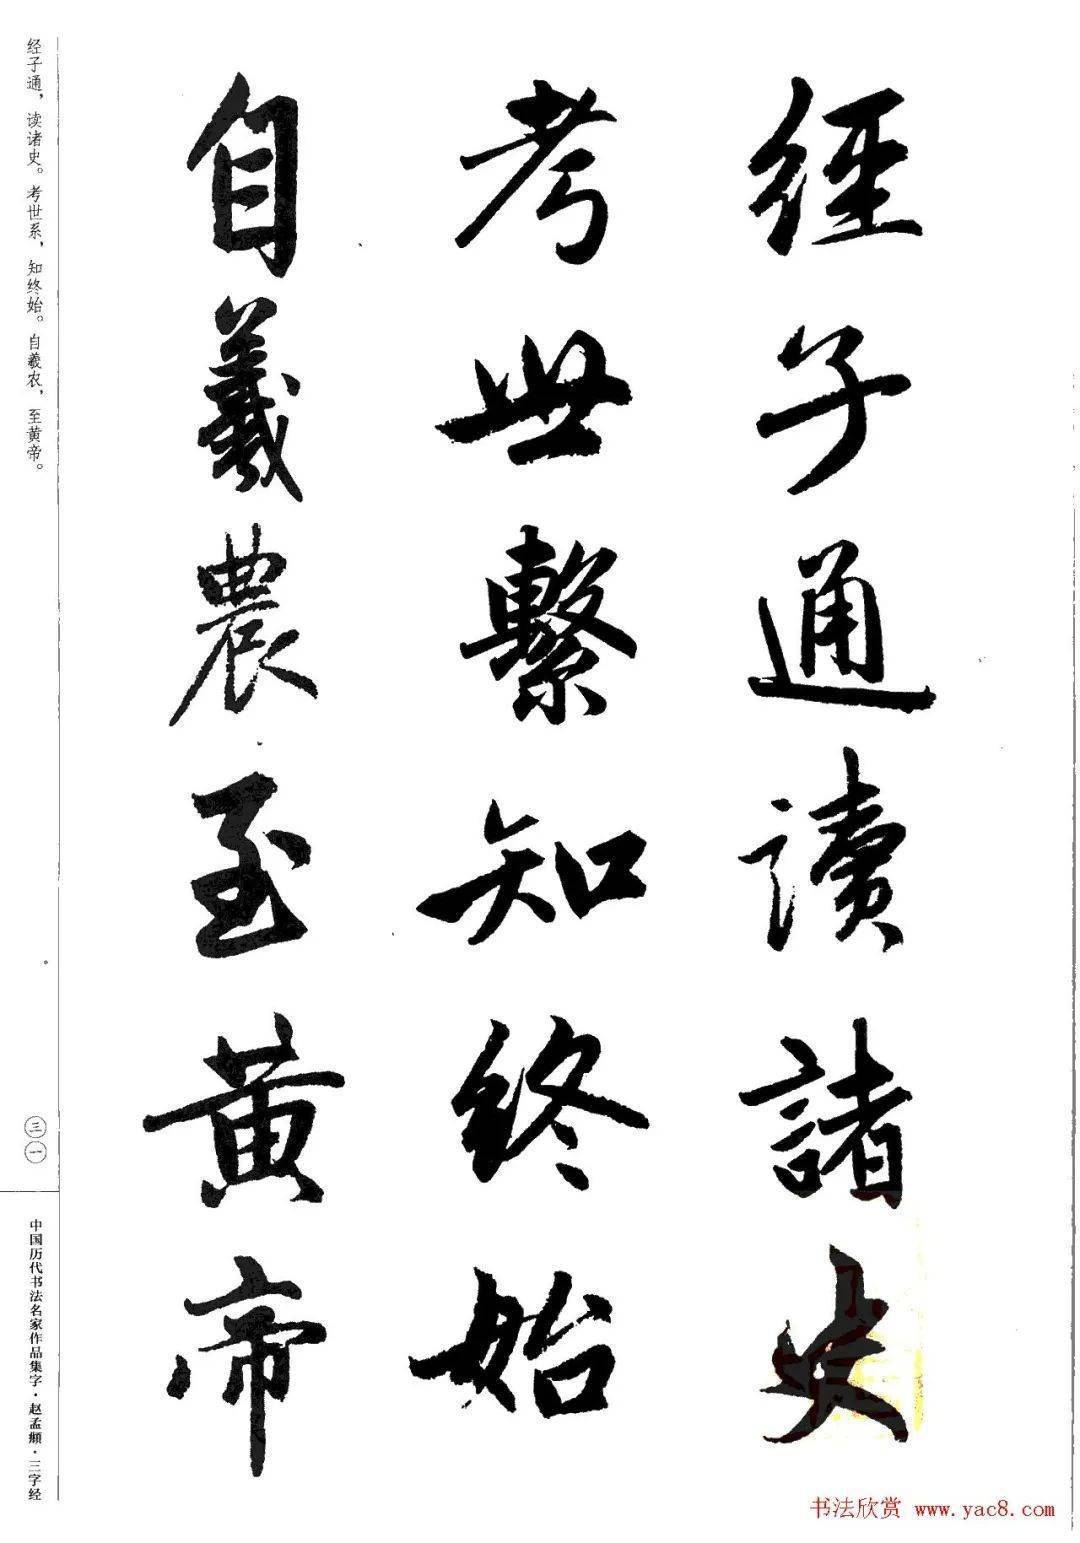 經子通讀諸史
考世繫知終始
自羲農至黄帝
经子通，读诸史。考世系，知终始。自羲农，至黄帝。
三一
中国历代书法名家作品集字·赵孟頫·三字经
书法欣赏 www.yac8.com